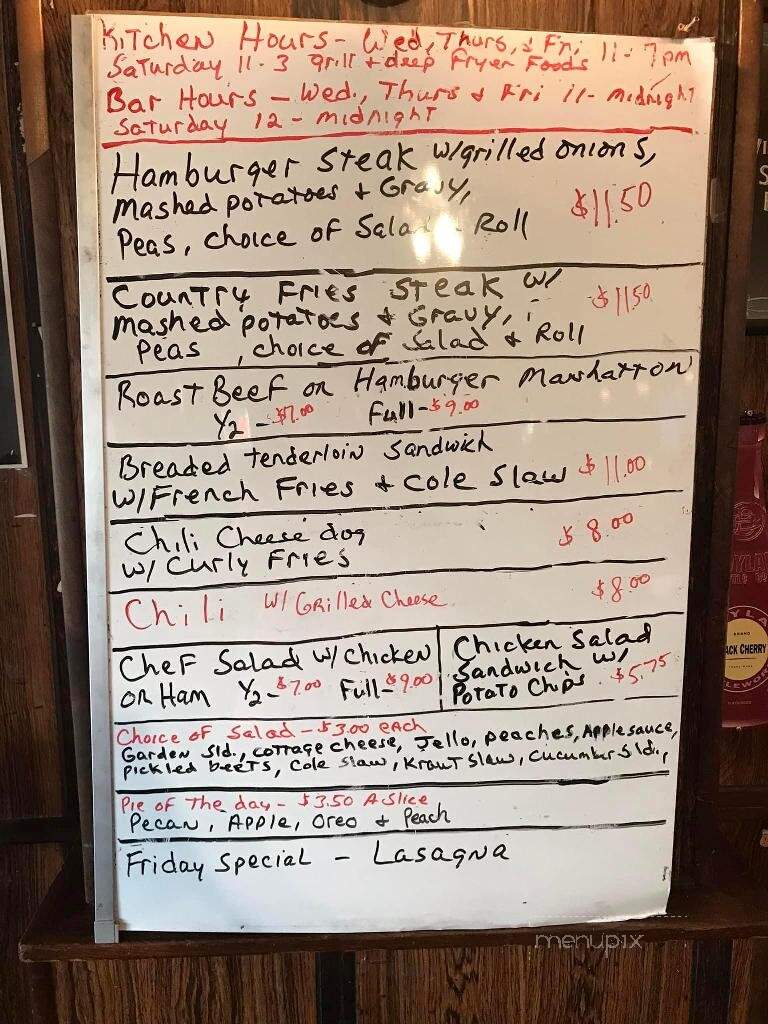 Kitchen Hours - Wed, Thurs, & Fri 11 - 7pm
Saturday 11 - 3 grill + deep fryer Foods
Bar Hours - Wed., Thurs & Fri 11 - midnight
Saturday 12 - midnight
Hamburger Steak w/grilled onions,
mashed potatoes + Gravy, $11.50
Peas, choice of Salad Roll
Country Fries Steak w/ $11.50
mashed potatoes & Gravy,
Peas, choice of Salad & Roll
Roast Beef or Hamburger Manhatton
1/2 - $7.00 Full - $9.00
Breaded tenderloin Sandwich
w/French Fries + Cole Slaw $11.00
Chili Cheese dog $8.00
w/ Curly Fries
Chili w/ Grilled Cheese $8.00
Chef Salad w/ Chicken
or Ham 1/2 - $7.00 Full - $9.00
Chicken Salad
Sandwich w/
Potato Chips $5.75
Choice of Salad - $3.00 each
Garden Sld., cottage cheese, Jello, peaches, Applesauce,
pickled beets, Cole slaw, Kraut Slaw, Cucumber Sld.,
Pie of The day - $3.50 A Slice
Pecan, Apple, Oreo & Peach
Friday Special - Lasagna
ACK CHERRY
menupix